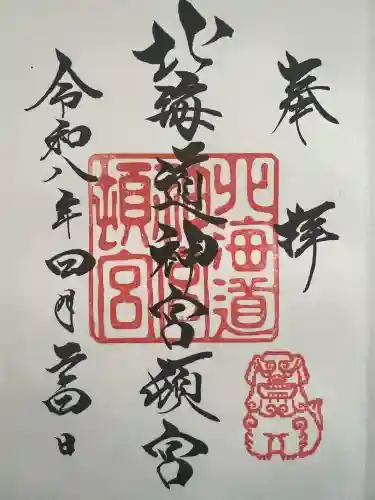 奉拝
北海道神宮頓宮
北海道神宮頓宮
令和八年四月廿四日